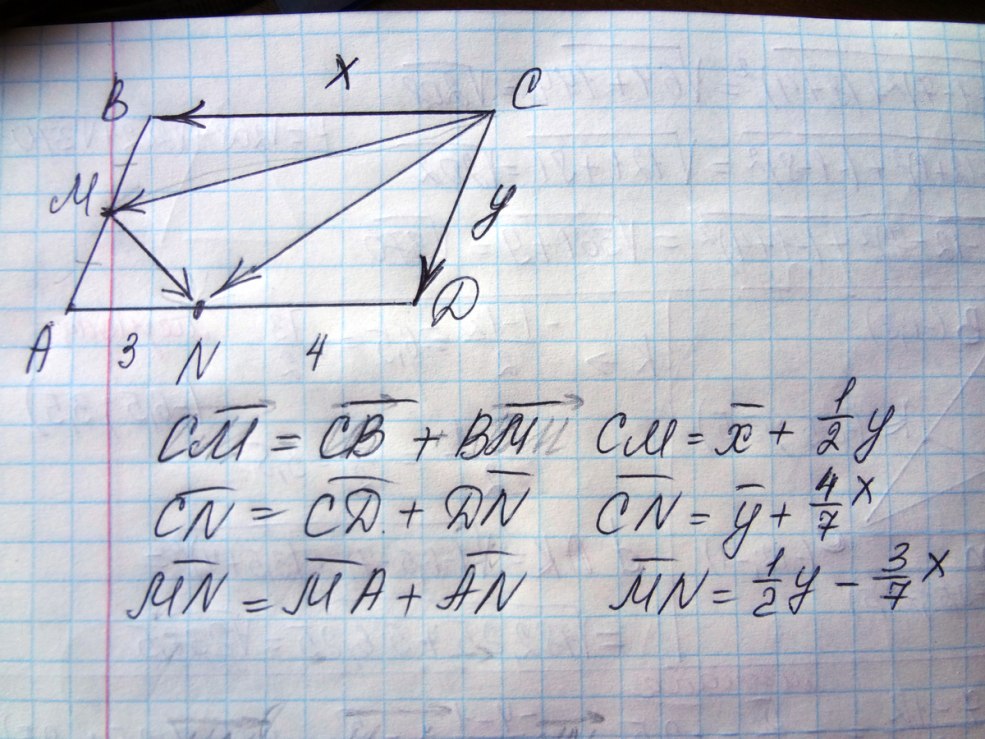 X
B C
M
y
D
A 3 N 4
CM = CB + BM CM = x + 1/2 y
CN = CD + DN CN = y + 4/7 x
MN = MA + AN MN = 1/2 y - 3/7 x